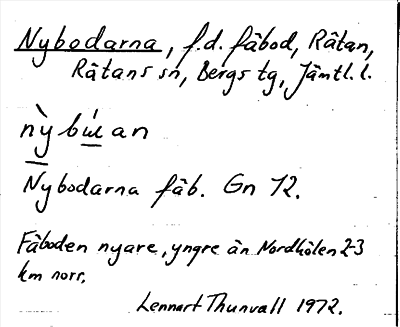 Nybodarna, f.d. fäbod, Rätan,
Rätans sn, Bergs tg, Jämtl. l.
nỳbúɩan
Nybodarna fäb. Gn 12.
Fäboden nyare, yngre än Nordhölen 2-3
km norr.
Lennart Thunvall 1972.